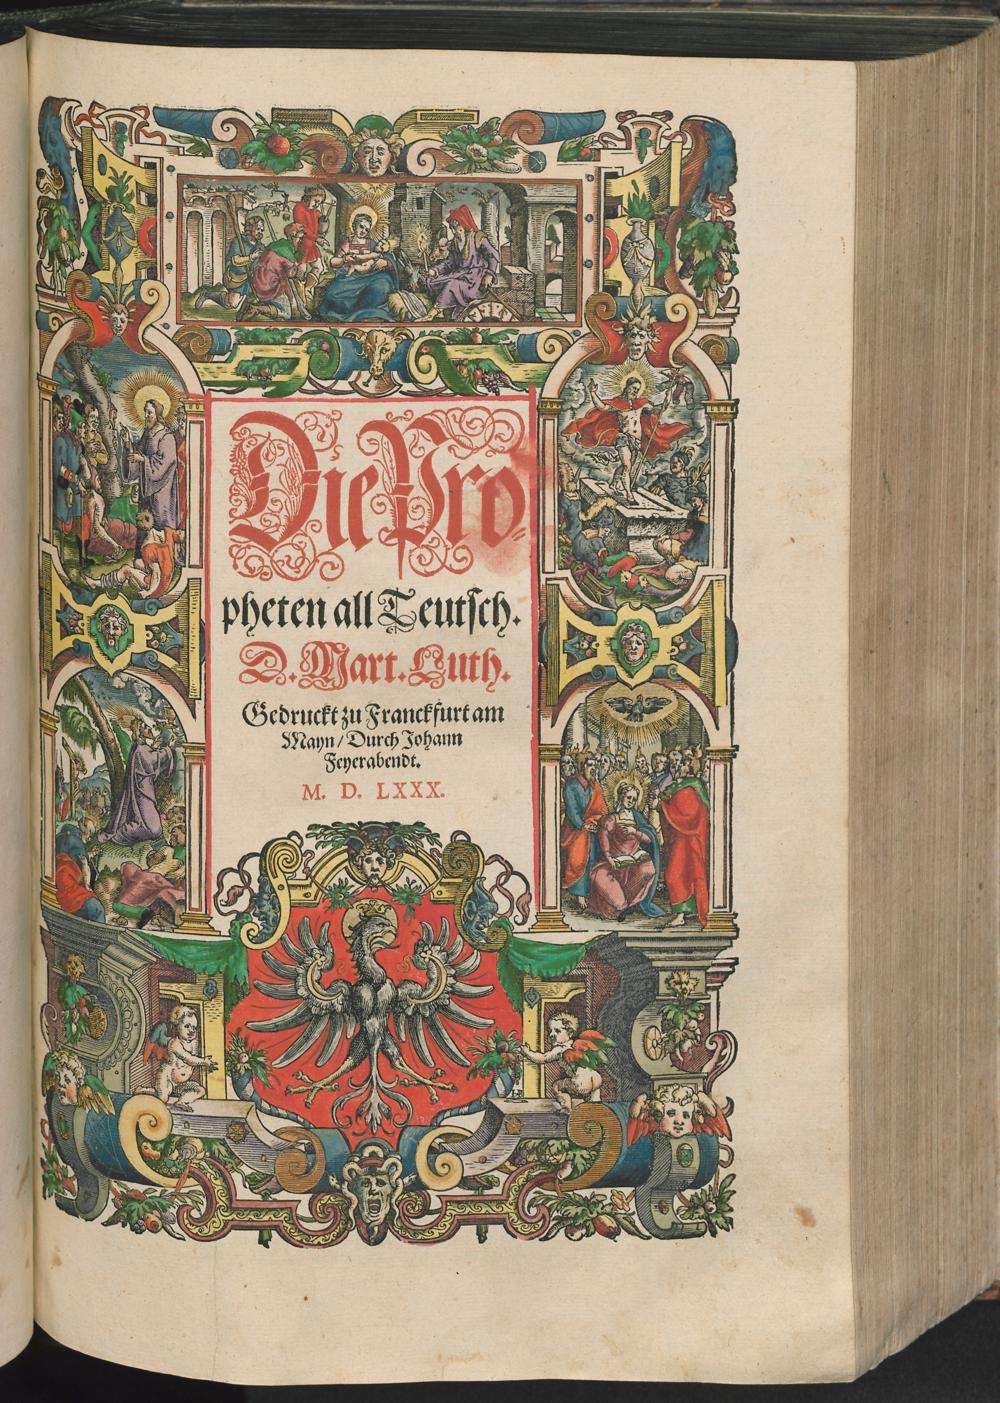 Die Pro⸗
pheten all Teutſch.
D. Mart. Luth.
Gedruckt zu Franckfurt am
Mayn/ Durch Johann
Feyerabendt.
M. D. LXXX.